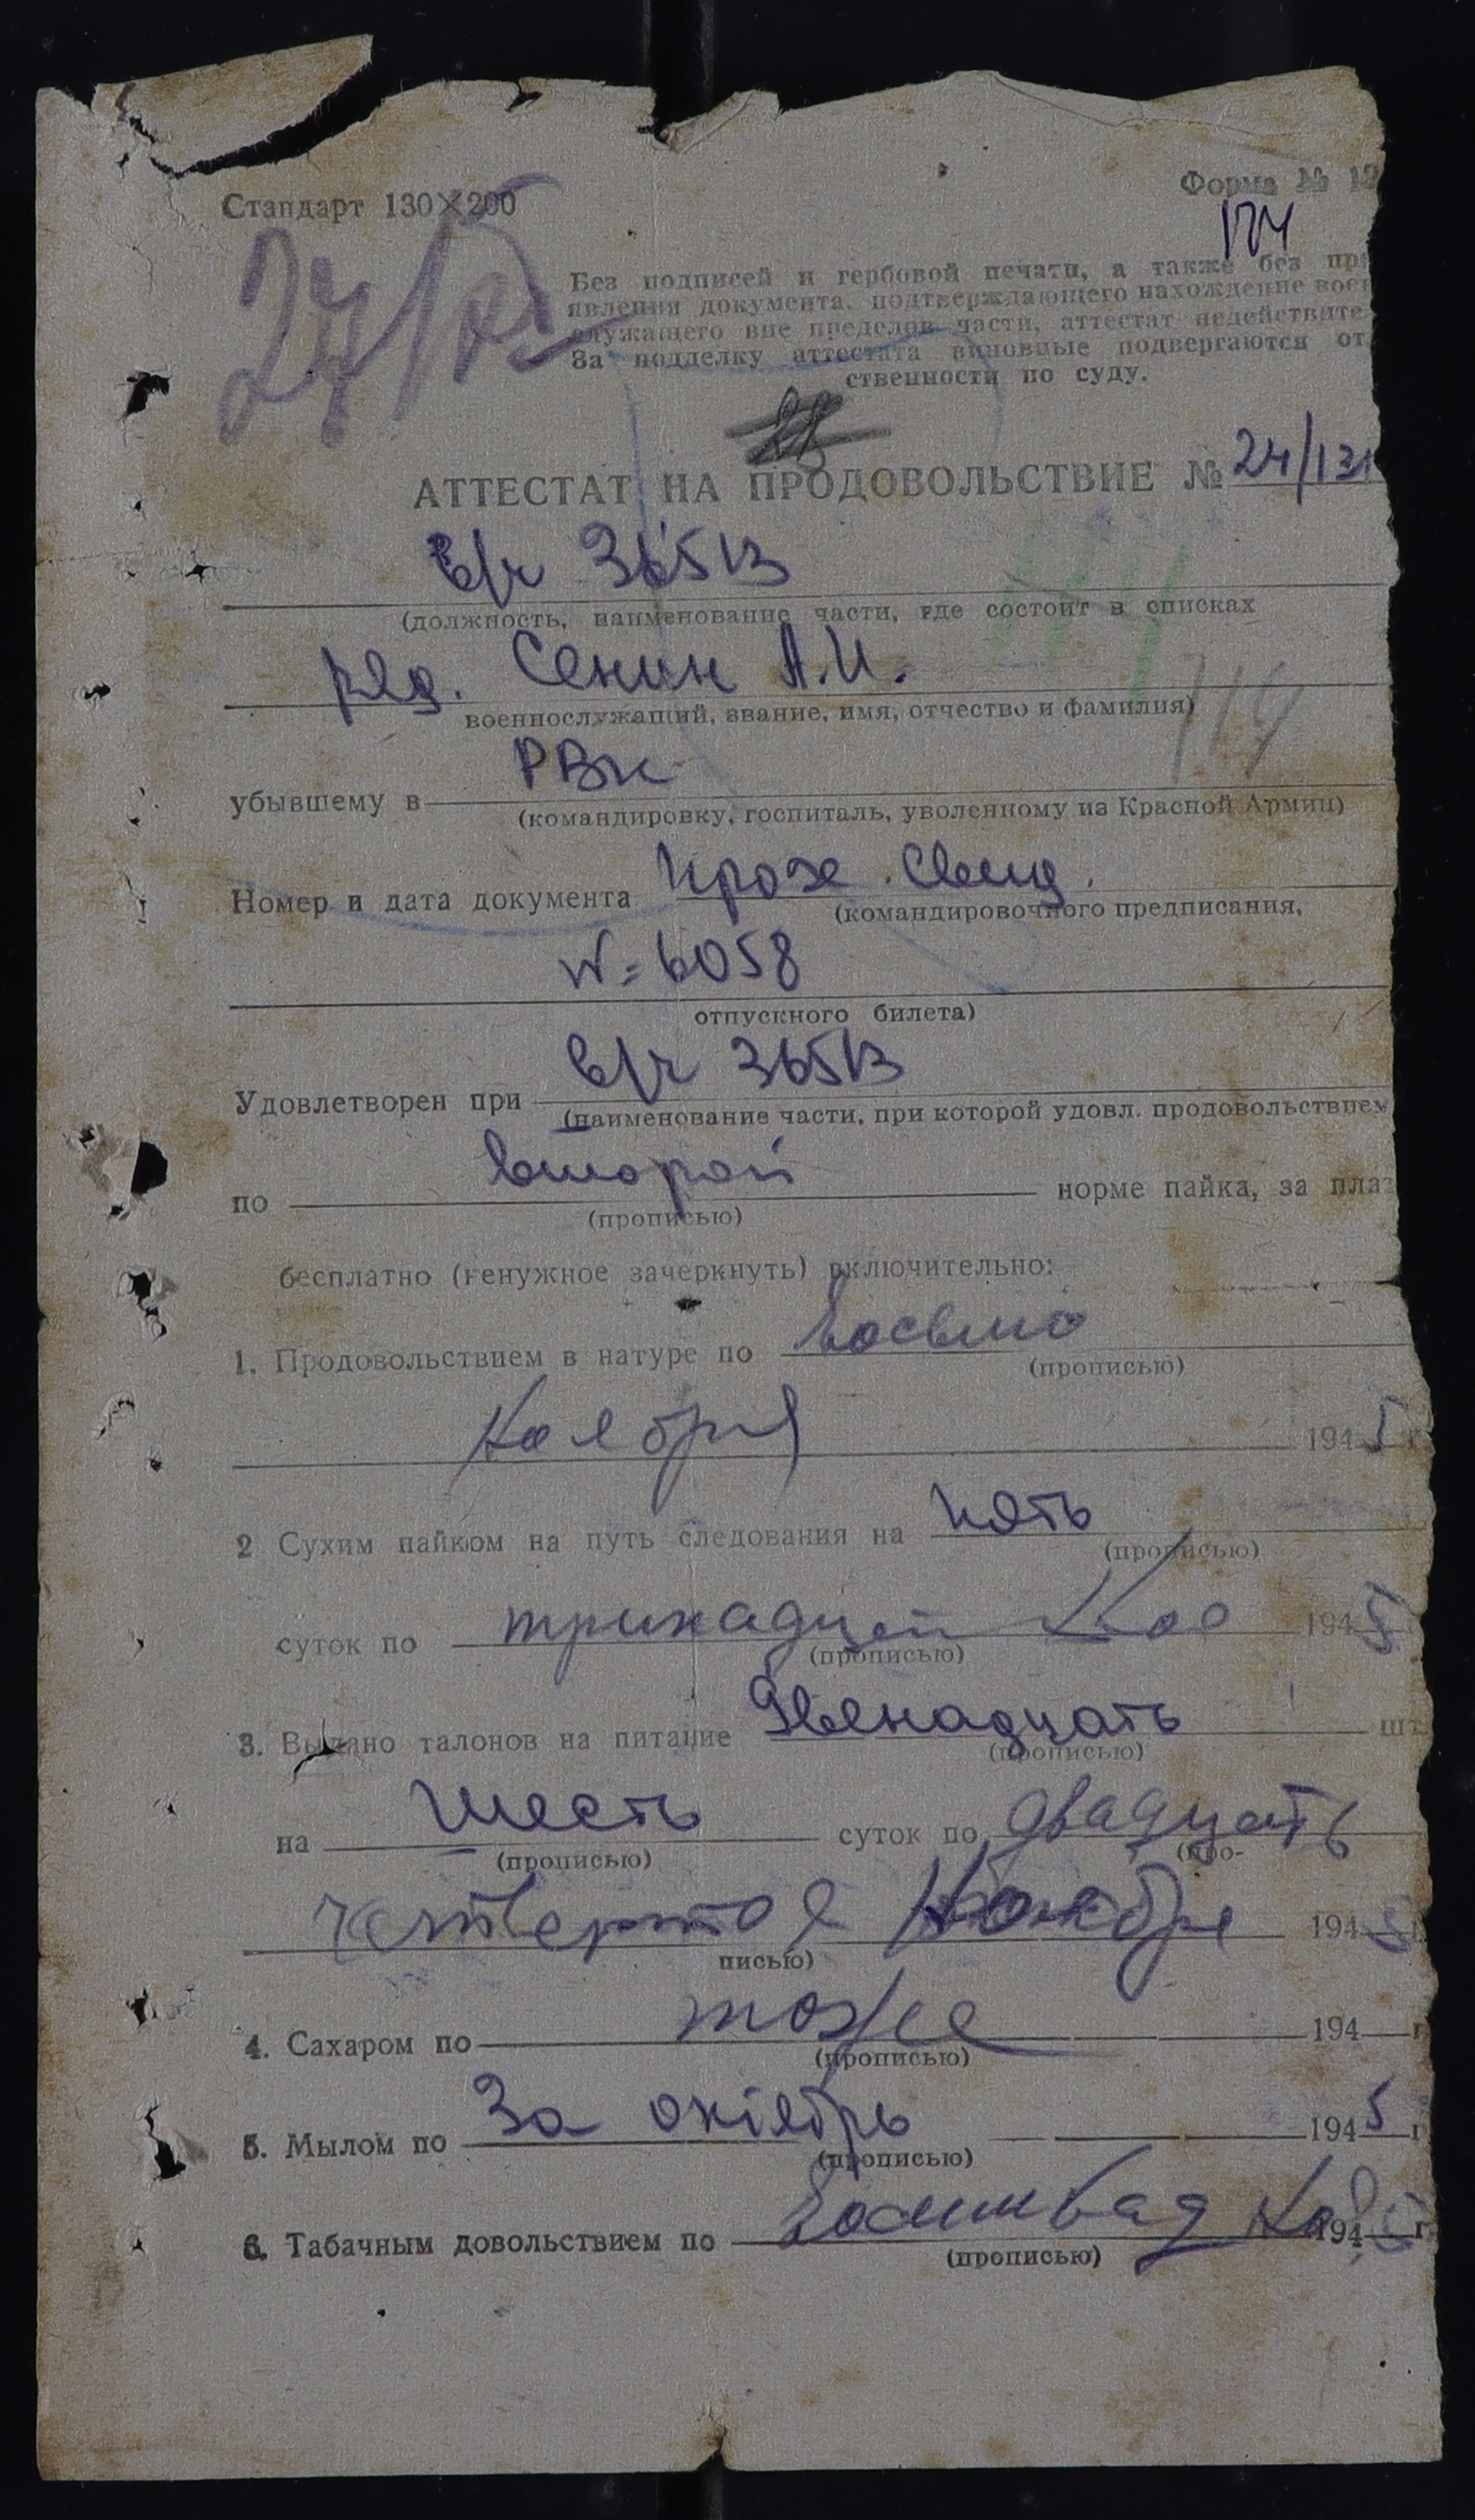 Стандарт 130×200
Форма № 12
174
Без подписей и гербовой печати, а также без пр
явления документа, подтверждающего нахождение воен
служащего вне пределов части, аттестат недействите
За подделку аттестата виновные подвергаются от
ственности по суду.
АТТЕСТАТ НА ПРОДОВОЛЬСТВИЕ № 24/131
В/ч 36513
(должность, наименование части, где состоит в списках
ряд. Сенин А.И.
военнослужащий, звание, имя, отчество и фамилия)
убывшему в РВК
(командировку, госпиталь, уволенному из Красной Армии)
Номер и дата документа прох. свид.
(командировочного предписания,
N=6058
отпускного билета)
Удовлетворен при в/ч 36513
(наименование части, при которой удовл. продовольствием
по второй норме пайка, за плат
(прописью)
бесплатно (ненужное зачеркнуть) включительно:
1. Продовольствием в натуре по восьмо
(прописью)
ноября 1945 г
2 Сухим пайком на путь следования на пять
(прописью)
суток по тринадцат Ноя 1945
(прописью)
3. Выдано талонов на питание Двенадцать шт
(прописью)
на шесть суток по двадцать
(прописью) (про-
четвертое Ноября 1945 г
писью)
4. Сахаром по тоже 194 г
(прописью)
5. Мылом по За октябрь 1945 г
(прописью)
6. Табачным довольствием по 194 г
(прописью)